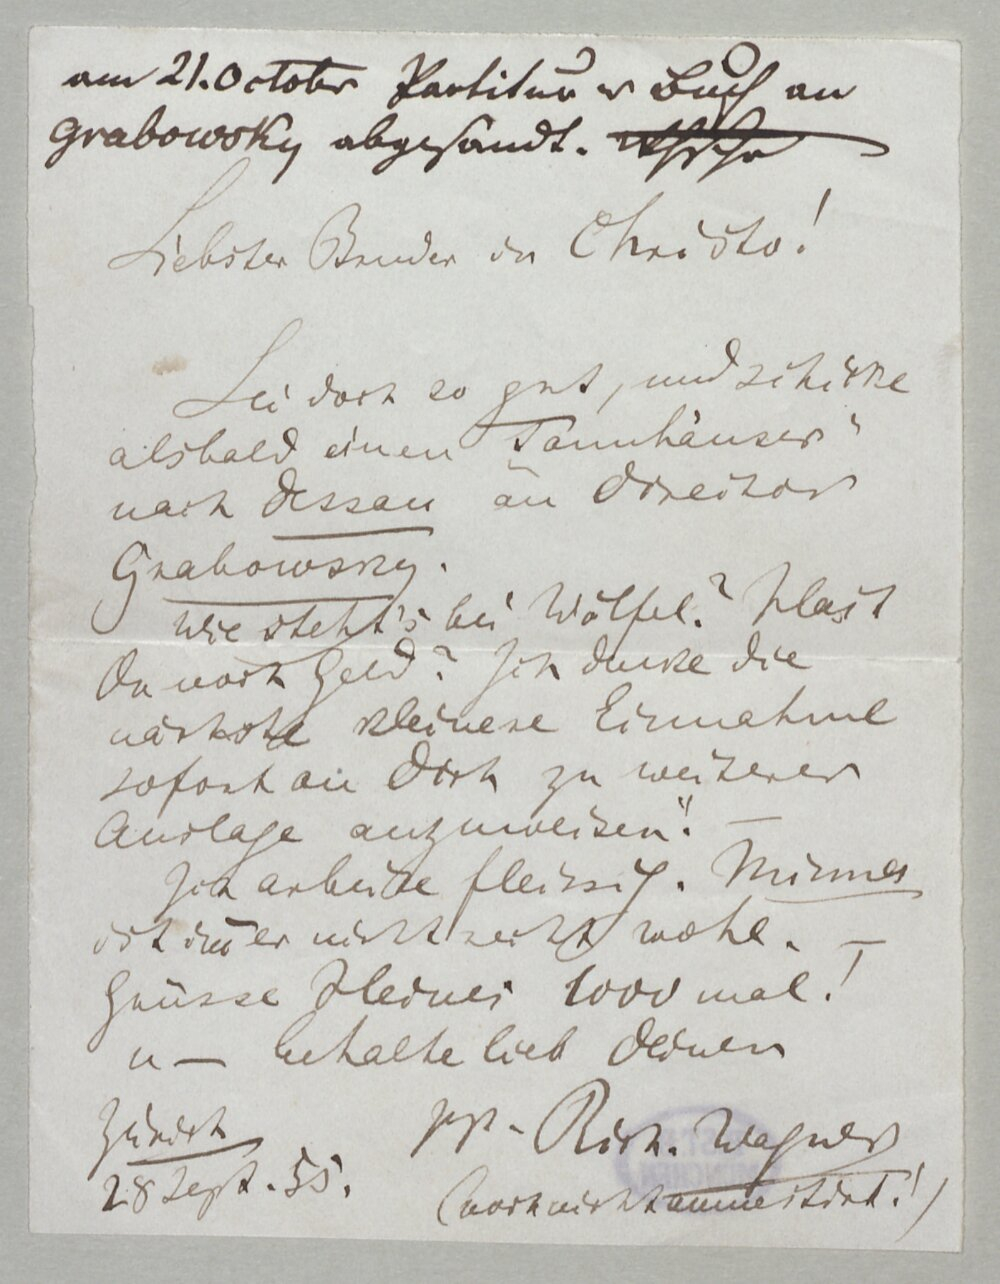 am 21. October Partitur u Buch an
Grabowsky abgesandt.
Liebster Bruder in Christo!
Sei doch so gut, und schicke
alsbald einen "Tannhäuser"
nach Dessau an Director
Grabowsky.
Wie steht's bei Wölfel? Hast
Du noch Geld? Ich denke die
nächste kleinere Einnahme
sofort an Dich zu weiterer
Auslage anzuweisen. —
Ich arbeite fleissig. Minna
ist im̄er nicht recht wohl. —
Grüsse Heinei 1000 mal!
u — behalte lieb Deinen
Zürich
28 Sept. 55.
Rich. Wagner
(noch nicht amnestirt!)